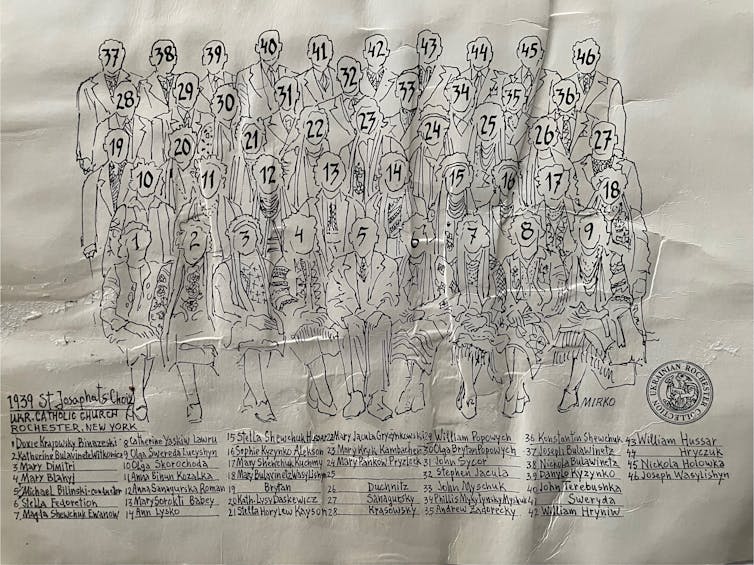 37 38 39 40 41 42 43 44 45 46
28 29 30 31 32 33 34 35 36
19 20 21 22 23 24 25 26 27
10 11 12 13 14 15 16 17 18
1 2 3 4 5 6 7 8 9
MIRKO
UKRAINIAN ROCHESTER COLLECTION
1939 St Josaphats Choir
UKR. CATHOLIC CHURCH
ROCHESTER, NEW YORK
2 Katherine
3 Mary Dimitri
4 Mary Blahy
5 Michael Bilinski-conductor
6 Stella Fedoretion
7 Magda Shewchuk Ewanow
8 Catherine Yaskiw Lawru
9 Olga Swereda Lucyshyn
10 Olga Skorochoda
11 Anna Binun Kozalka
12 Anna Sanagurska Roman
13 Mary Sorokti Babey
14 Ann Lysko
15 Stella Shewchuk
16 Sophie Kyzymko
17 Mary Shewchuk Kuchmy
18 Mary Bulavinetz Wasylishyn
19 Brytan
20 Kath-Lysy Daskewicz
21 Stella Horylew Kayson
22 Mary Jacula
23 Mary Kryk Kambachen
24 Mary Pankow
25
26 Duchnitz
27 Sanagursky
28 Krasowsky
29 William Popowych
30 Olga Brytan Popowych
31 John Sycor
32 Stephen Jacula
33 John Myschuk
34 Phillis Mykytynsky
35 Andrew Zadorecky
36 Konstantin Shewchuk
37 Joseph Bulawinetz
38 Nickola Bulawinetz
39 Danylo Kyzynko
40 John Terebushka
Sweryda
42 William Hryniw
43 William Hussar
44 Hryczuk
45 Nickola Holowka
46 Joseph Wasylishyn